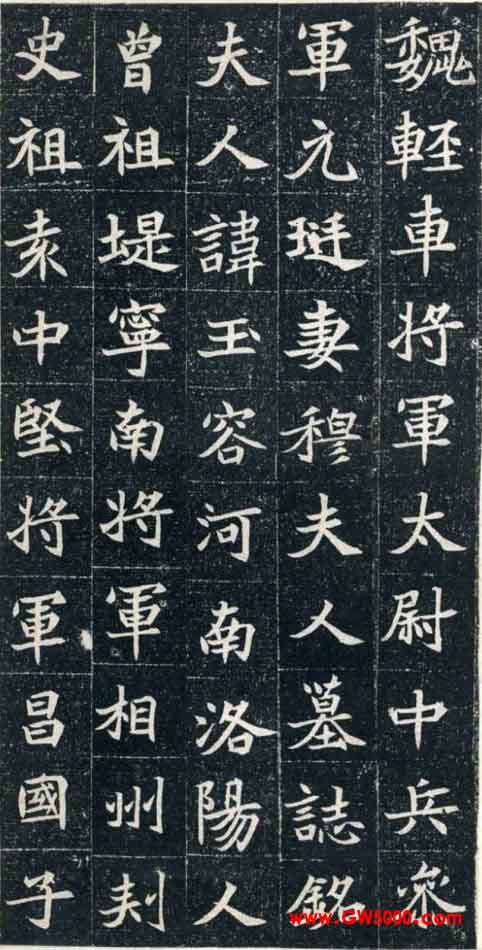 魏輕車将軍太尉中兵叅
軍元珽妻穆夫人墓誌銘
夫人諱玉容河南洛陽人
曾祖堤寧南将軍相州刾
史祖袁中堅将軍昌國子
www.GW5000.com